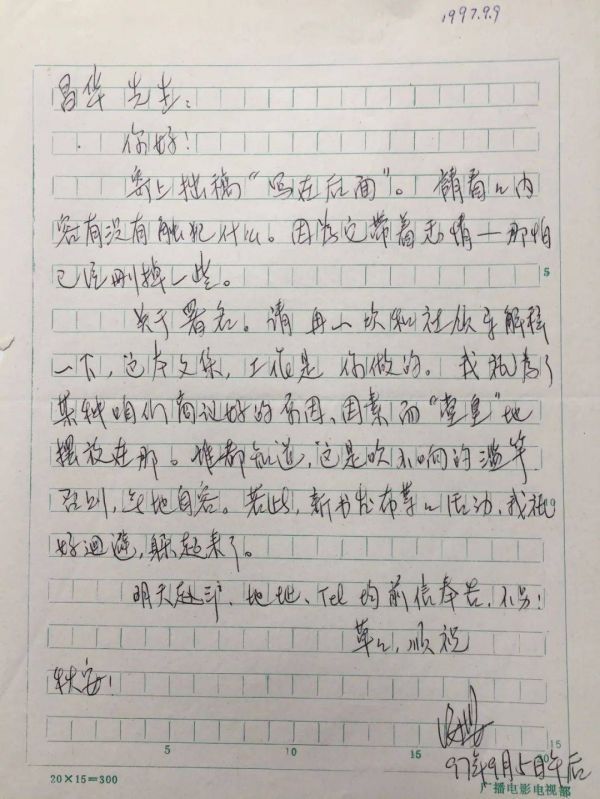 1997.9.9
昌华先生:
你好!
寄上拙稿“写在后面”。请看看内
容有没有触犯什么。因为它带着感情——那怕
已经删掉一些。
关于署名。请再一次和社领导解释
一下,这本文集,工作是你做的。我祇为了
某种咱们商议好的原因、因素而“堂皇”地
摆放在那。谁都知道,这是吹不响的滥竽
否则,无地自容。若此,新书发布等等活动,我祇
好迴避,躲起来了。
明天赴沪,地址、Tel均前信奉告,不另!
草草,顺祝
秋安!
97年9月5日午后
5
10
15
5
15
20×15=300
广播电影电视部